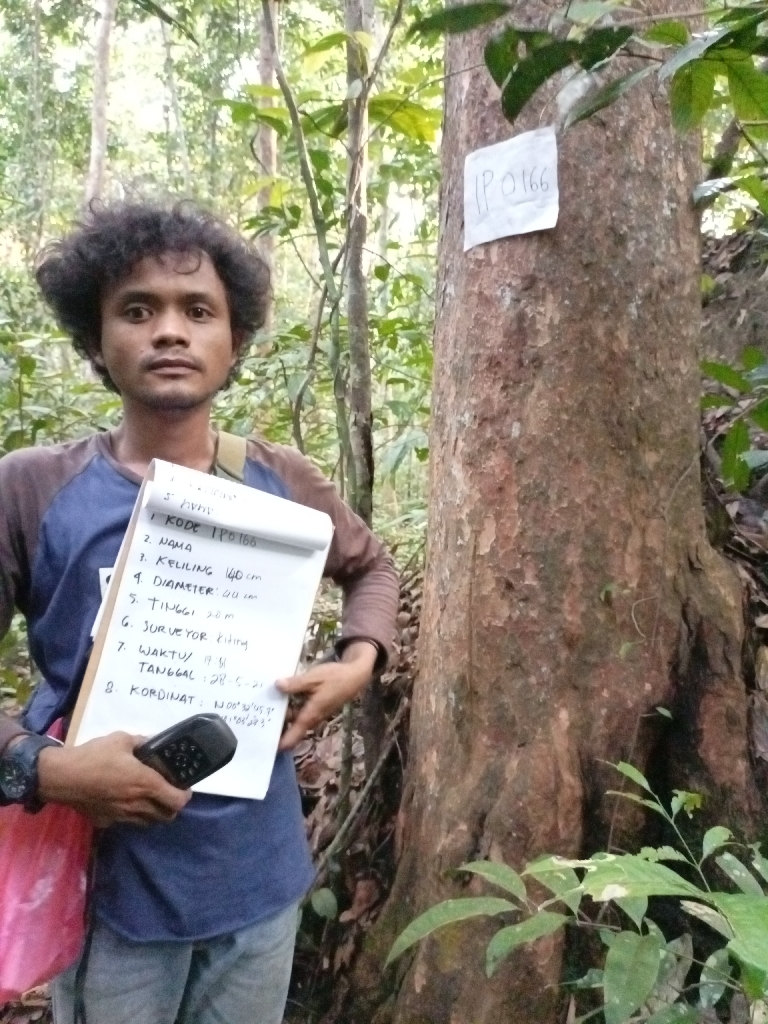 1P0166
1. KODE 1P0166
2. NAMA
3. KELILING 140 cm
4. DIAMETER:
5. TINGGI
6. SURVEYOR Kiting
7. WAKTU/
TANGGAL : 28-5-21
8. KORDINAT : N 00°32'